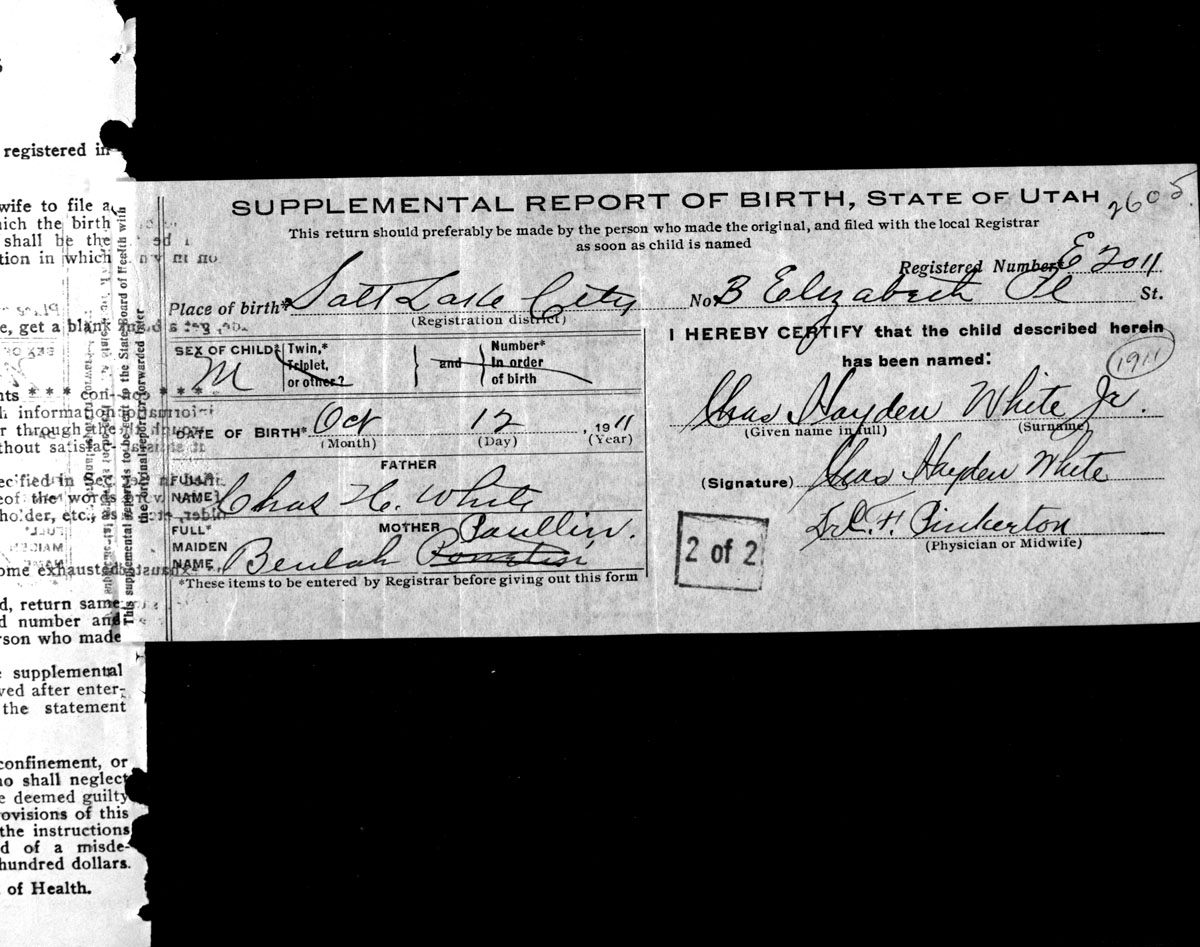 registered in
wife to file a
which the birth
shall be the
tion in which
e, get a blank
nts * * * con-
h information
r through the
thout satisfac-
ecified in Sec.
eof the words
holder, etc., as
ome exhausted
d, return same
d number and
rson who made
e supplemental
ved after enter-
the statement
confinement, or
ho shall neglect
e deemed guilty
rovisions of this
the instructions
d of a misde-
hundred dollars.
of Health.
This supplemental report is to be sent to the State Board of Health with
the original report or forwarded later
SUPPLEMENTAL REPORT OF BIRTH, STATE OF UTAH 2605
This return should preferably be made by the person who made the original, and filed with the local Registrar
as soon as child is named
Registered Number* E 2011
Place of birth* Salt Lake City No. B Elizabeth Pl St.
(Registration district)
SEX OF CHILD* M
Twin,*
Triplet,
or other?
and
Number*
in order
of birth
DATE OF BIRTH* Oct 12, 1911
(Month) (Day) (Year)
FATHER
FULL*
NAME Chas H. White
FULL* MOTHER Paullin.
MAIDEN
NAME Beulah
*These items to be entered by Registrar before giving out this form
I HEREBY CERTIFY that the child described herein
has been named: 1911
Chas Hayden White Jr.
(Given name in full) (Surname)
(Signature) Chas Hayden White
Dr. C. F. Pinkerton
(Physician or Midwife)
2 of 2